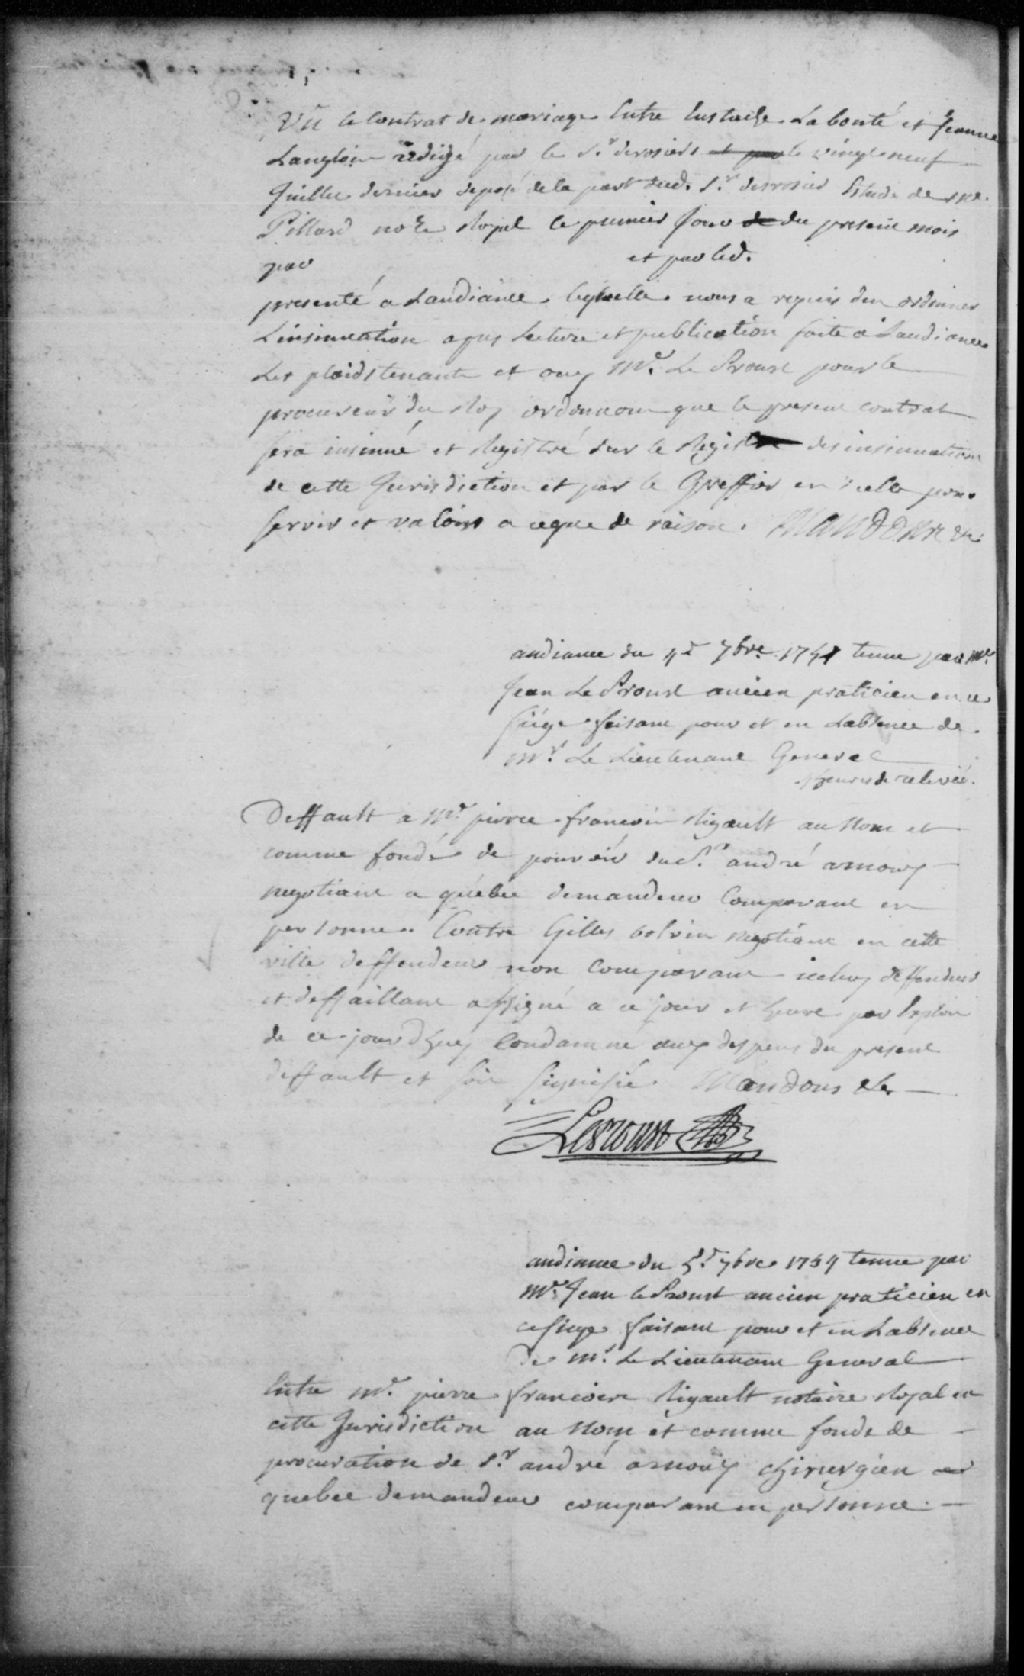 Vû le Contrat de mariage Entre Eustache Labonté et Jeanne
Langlois redigé par le Sr. desrosiers et par le vingt neuf
Juillet dernier deposé de la part dud. Sr. desrosiers Etude de me.
Pillard nore Royal le premier Jour de du present mois
par et par led.
presenté a Laudiance. lequelle nous a requis den ordonner
Linsinuation apres Lecture et publication faite a Laudiance
Les plaids tenants et ouy Mr. Le Proust pour le
procureur du Roy ordonnons que le present contrat
sera insinué et Registré sur le Registre des insinuations
de cette Jurisdiction et par le Greffier en icelle pour
servir et valoir a ce que de raison. Mandons &c.
audiance du 4e 7bre 1754 tenue par Mr.
Jean Le Proust ancien praticien en ce
siége faisant pour et en Labsence de
Mr. Le Lieutenant General
heures de relevée.
Deffault a Mr. pierre francois Rigault au Nom et
comme fondé de pouvoir du Sr. andré arnoux
negotiant a québec demandeur Comparant en
personne. Contre Gilles bolvin Negotiant en cette
ville deffendeur non Comparant iceluy deffendeur
et deffaillant assigné a ce jour et heure par Exploit
de ce jourdhuy Condamné aux despens du present
deffault et soit signifié Mandons &c.
LeProust
audiance du 5e 7bre 1754 tenue par
Mr. Jean le Proust ancien praticien en
ce siege faisant pour et en Labsence
de Mr. Le Lieutenant General
Entre Mr. pierre francois Rigault notaire Royal en
cette Jurisdiction au Nom et comme fondé de
procuration de Sr. andré arnoux chirurgien a
quebec demandeur comparant en personne.